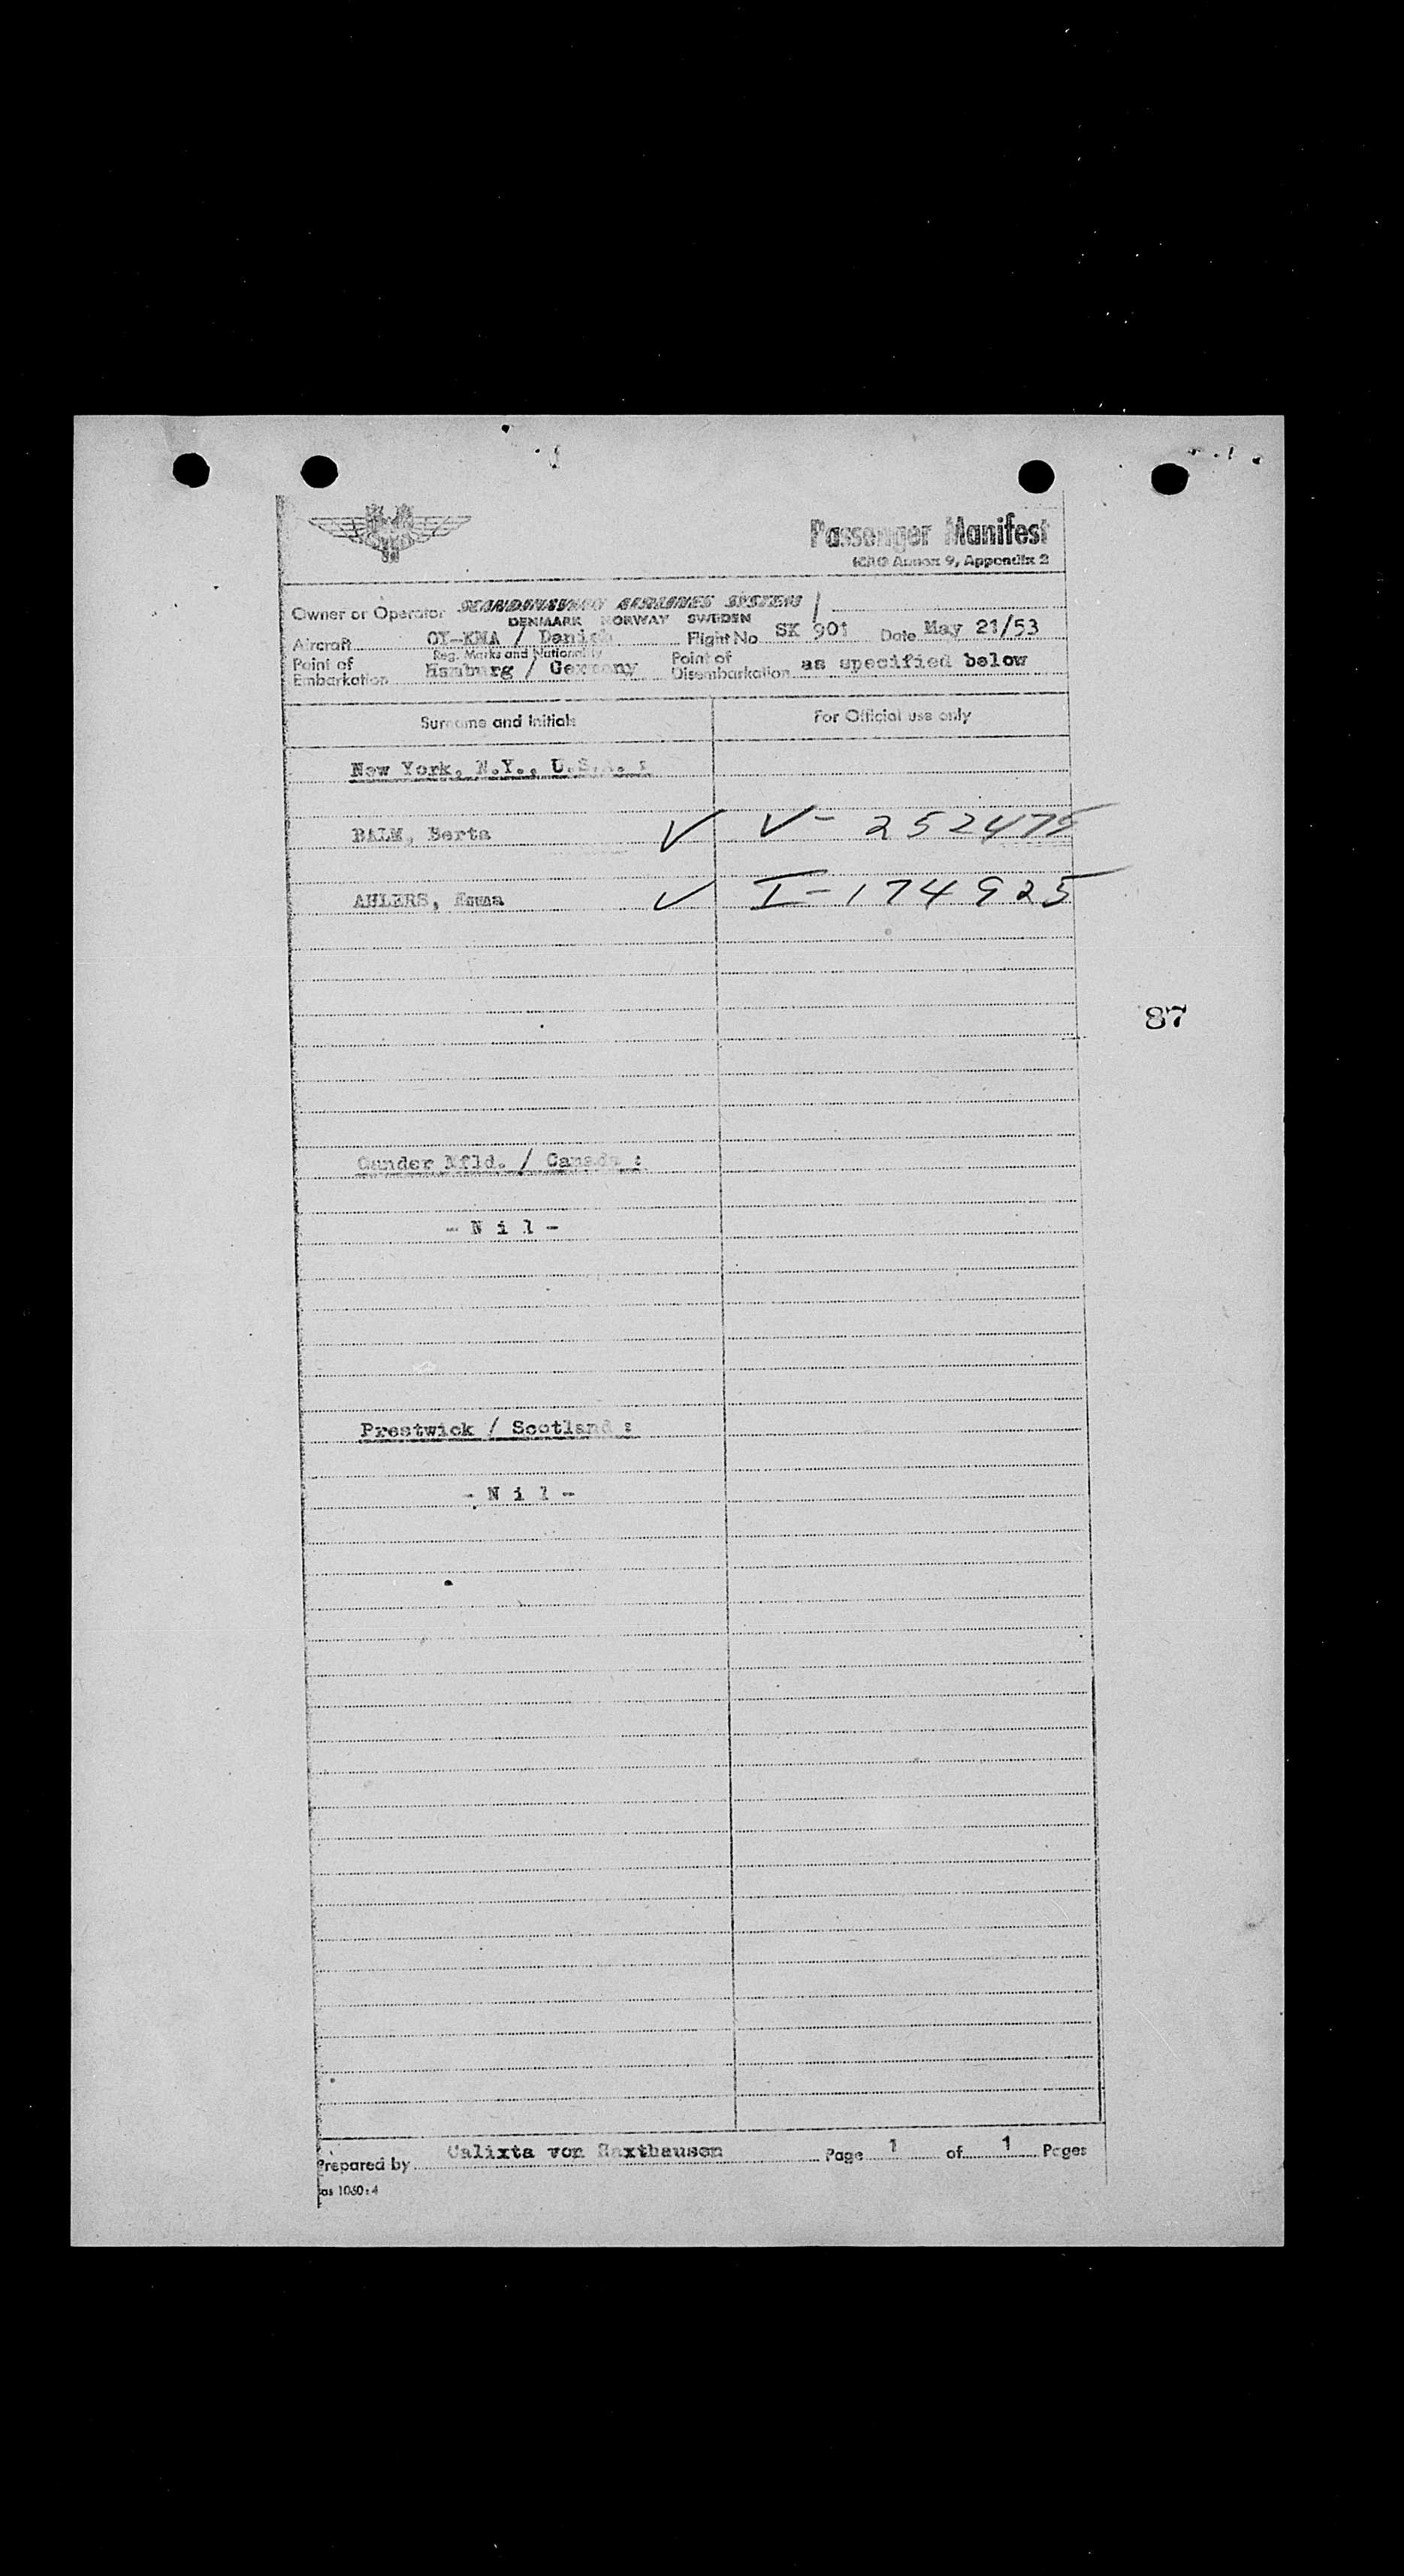 Passenger Manifest
ICAO Annex 9, Appendix 2
Owner or Operator SCANDINAVIAN AIRLINES SYSTEM
DENMARK NORWAY SWEDEN
Aircraft OY-KMA / Danish Flight No SK 901 Date May 21/53
Reg. Marks and Nationality
Point of Embarkation Hamburg / Germany Point of Disembarkation as specified below
Surname and Initials For Official use only
New York, N.Y., U.S.A. :
BALM, Berta V V- 252475
AHLERS, Emma V I-174925
87
Gander Nfld. / Canada :
- N i l -
Prestwick / Scotland :
- N i l -
Prepared by Calixta von Haxthausen Page 1 of 1 Pages
as 1060:4